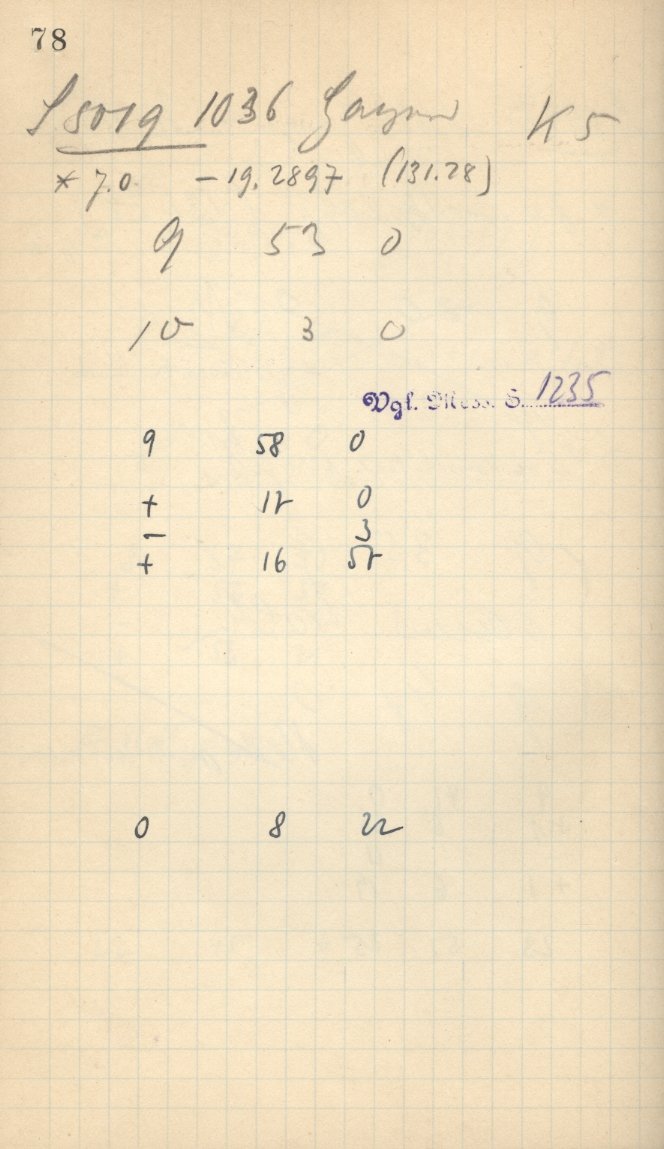 78
S 8019 1036 K 5
* 7.0 - 19.2897 (131.28)
9 53 0
10 3 0
Vgl. Mess. S. 1235
9 58 0
+ 12 0
- 3
+ 16 52
0 8 22